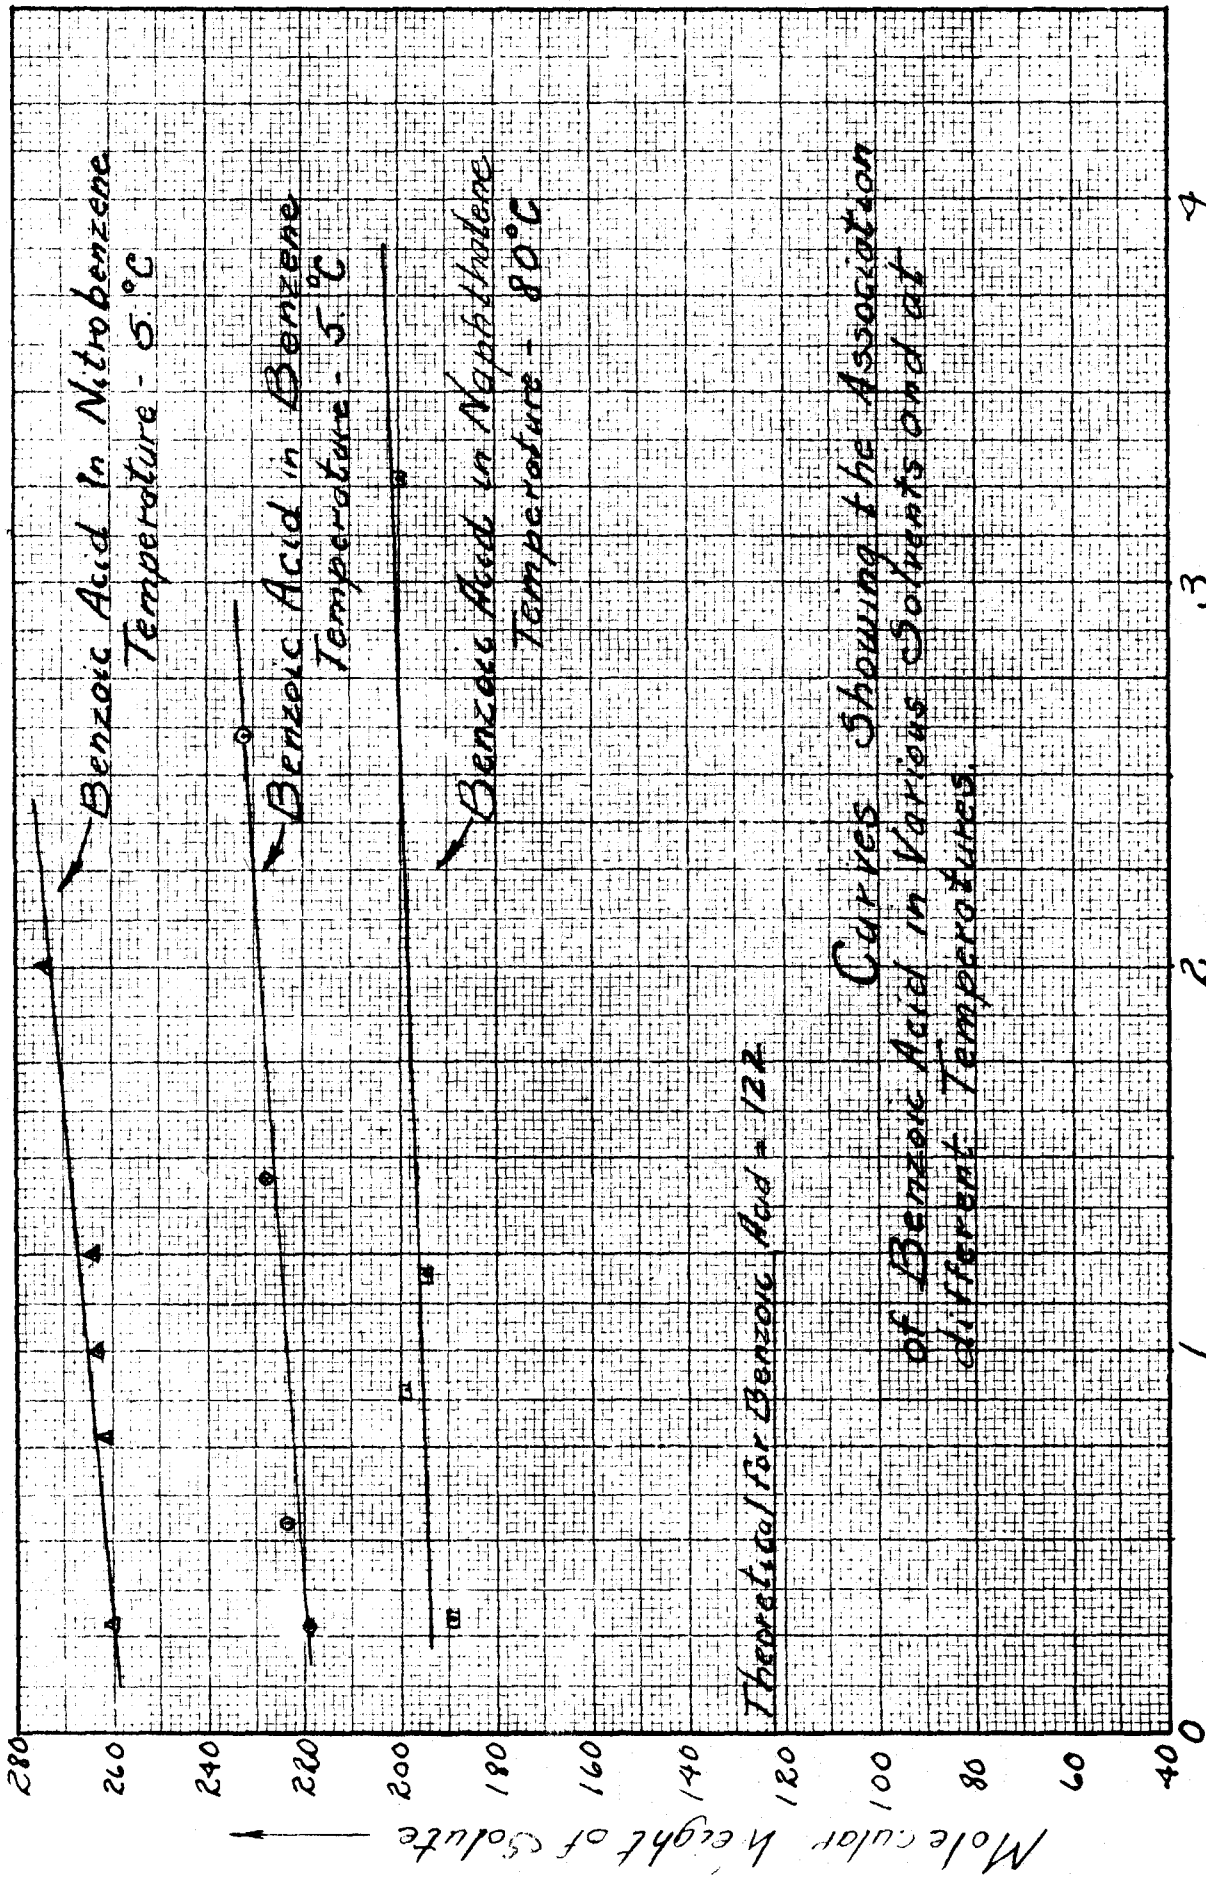 Benzoic Acid In Nitrobenzene
Temperature - 5.°C
Benzoic Acid in Benzene
Temperature - 5.°C
Benzoic Acid in Naphthalene
Temperature - 80°C
Theoretical for Benzoic Acid = 122
Curves Showing the Association
of Benzoic Acid in Various Solvents and at
different Temperatures.
Molecular Weight of Solute
280
260
240
220
200
180
160
140
120
100
80
60
40
0
1
2
.3
4